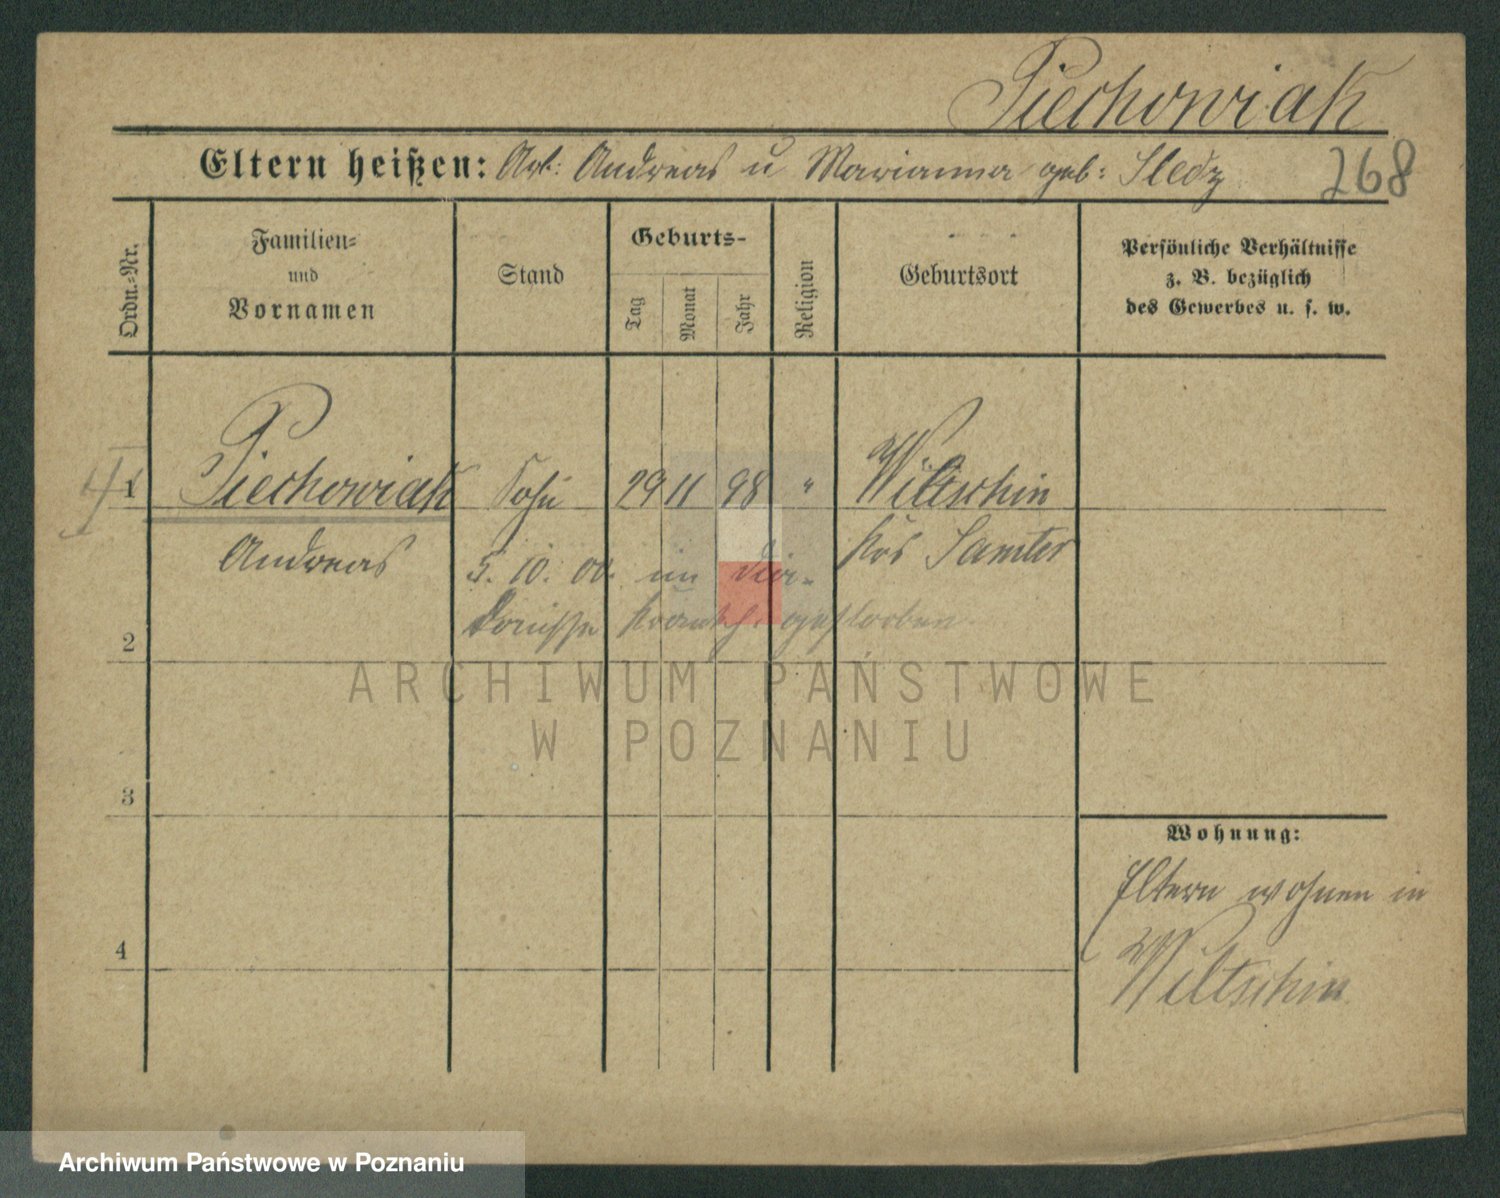 Piechowiak
Eltern heißen: Arb: Andreas u Marianna geb: Sledz 268
Ordn.-Nr.
Familien-
und
Vornamen
Stand
Geburts-
Tag
Monat
Jahr
Religion
Geburtsort
Persönliche Verhältnisse
z. B. bezüglich
des Gewerbes u. s. w.
1 Piechowiak Sohn 29 11 98 " Wiltschin
Andreas
Krs Samter
5. 10. 00. im Dia-
konisse Krankh. gestorben
2
ARCHIWUM PAŃSTWOWE
W POZNANIU
3
4
Wohnung:
Eltern wohnen in
Wiltschin
Archiwum Państwowe w Poznaniu